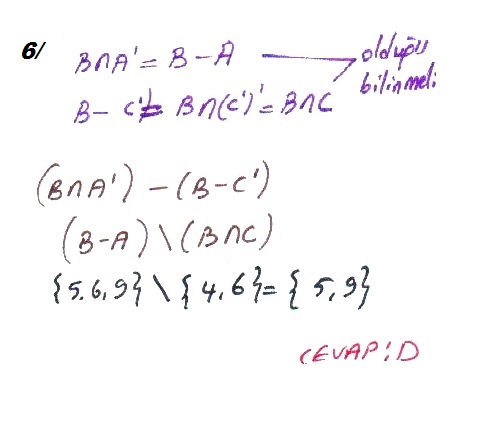 6/
B∩A' = B-A
olduğu
bilinmeli
B- C' = B∩(C')' = B∩C
(B∩A') - (B-C')
(B-A) \ (B∩C)
{5.6,9} \ {4,6} = {5,9}
CEVAP: D